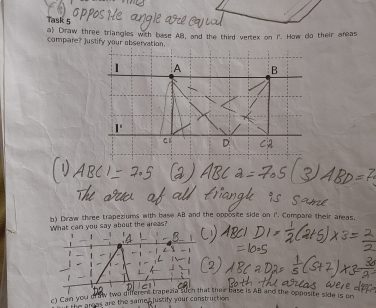 opposite angle are equal
Task 5
a) Draw three triangles with base AB, and the third vertex on l'. How do their areas
compare? Justify your observation.
l A B
l'
C1 D C2
(1) ABC1 = 7.5 (2) ABC2 = 7.5 (3) ABD = 7.
The area of all triangle is same
b) Draw three trapeziums with base AB and the opposite side on l'. Compare their areas.
What can you say about the areas?
(1) ABC1D1 = 1/2 (2+5) × 3 = 2
= 10.5
(2) ABC2D2 = 1/2 (5+2) × 3 =
Both the areas were
c) Can you draw two different trapezia such that their base is AB and the opposite side is on
the areas are the same? Justify your construction